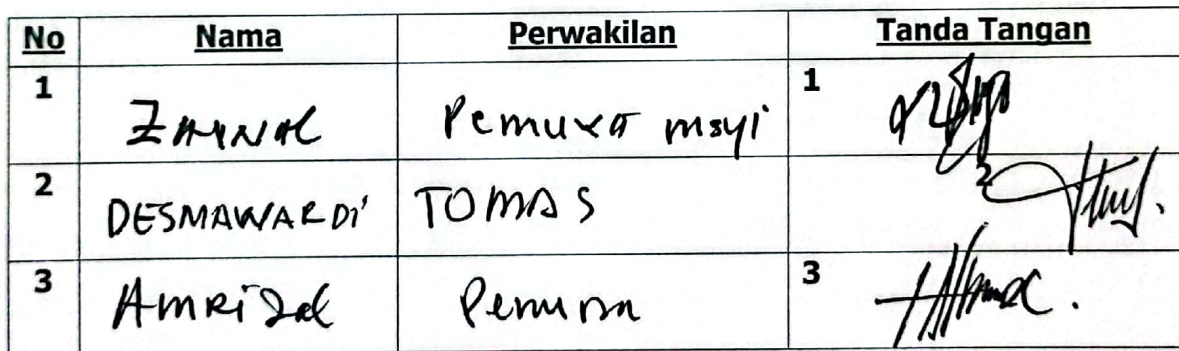 No Nama Perwakilan Tanda Tangan
1 Zainal Pemuka msyi 1
2 DESMAWARDi TOMAS 2
3 AmRizal Pemuda 3